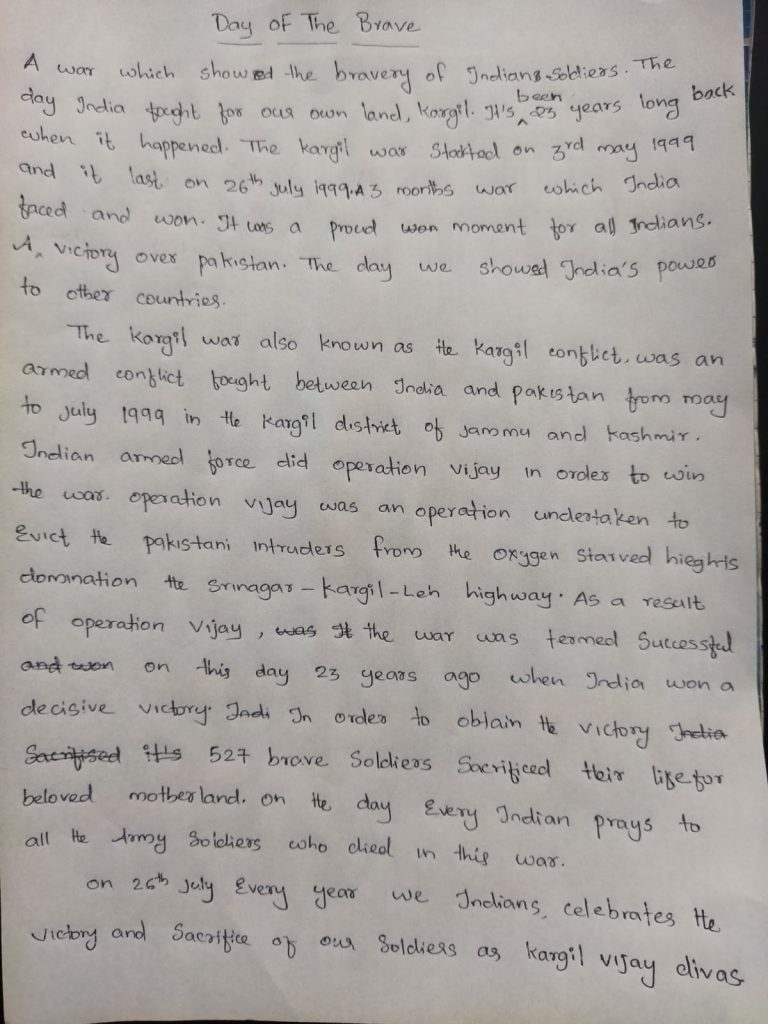 Day of The Brave
A war which showed the bravery of Indians Soldiers. The
day India fought for our own land, Kargil. It's been 23 years long back
when it happened. The kargil war Started on 3rd may 1999
and it last on 26th July 1999. A 3 months war which India
faced and won. It was a proud won moment for all Indians.
A victory over pakistan. The day we showed India's power
to other countries.
The kargil war also known as the kargil conflict, was an
armed conflict fought between India and pakistan from may
to July 1999 in the kargil district of jammu and kashmir.
Indian armed force did operation vijay in order to win
the war. operation vijay was an operation undertaken to
Evict the pakistani intruders from the oxygen starved hieghts
domination the Srinagar-Kargil-Leh highway. As a result
of operation vijay, was It the war was termed Successful
and won on this day 23 years ago when India won a
decisive victory. Indi In order to obtain the victory India
Sacrifised it's 527 brave Soldiers Sacrificed their life for
beloved motherland. on the day Every Indian prays to
all the Army Soldiers who died in this war.
on 26th July Every year we Indians, celebrates the
victory and Sacrifice of our Soldiers as kargil vijay divas